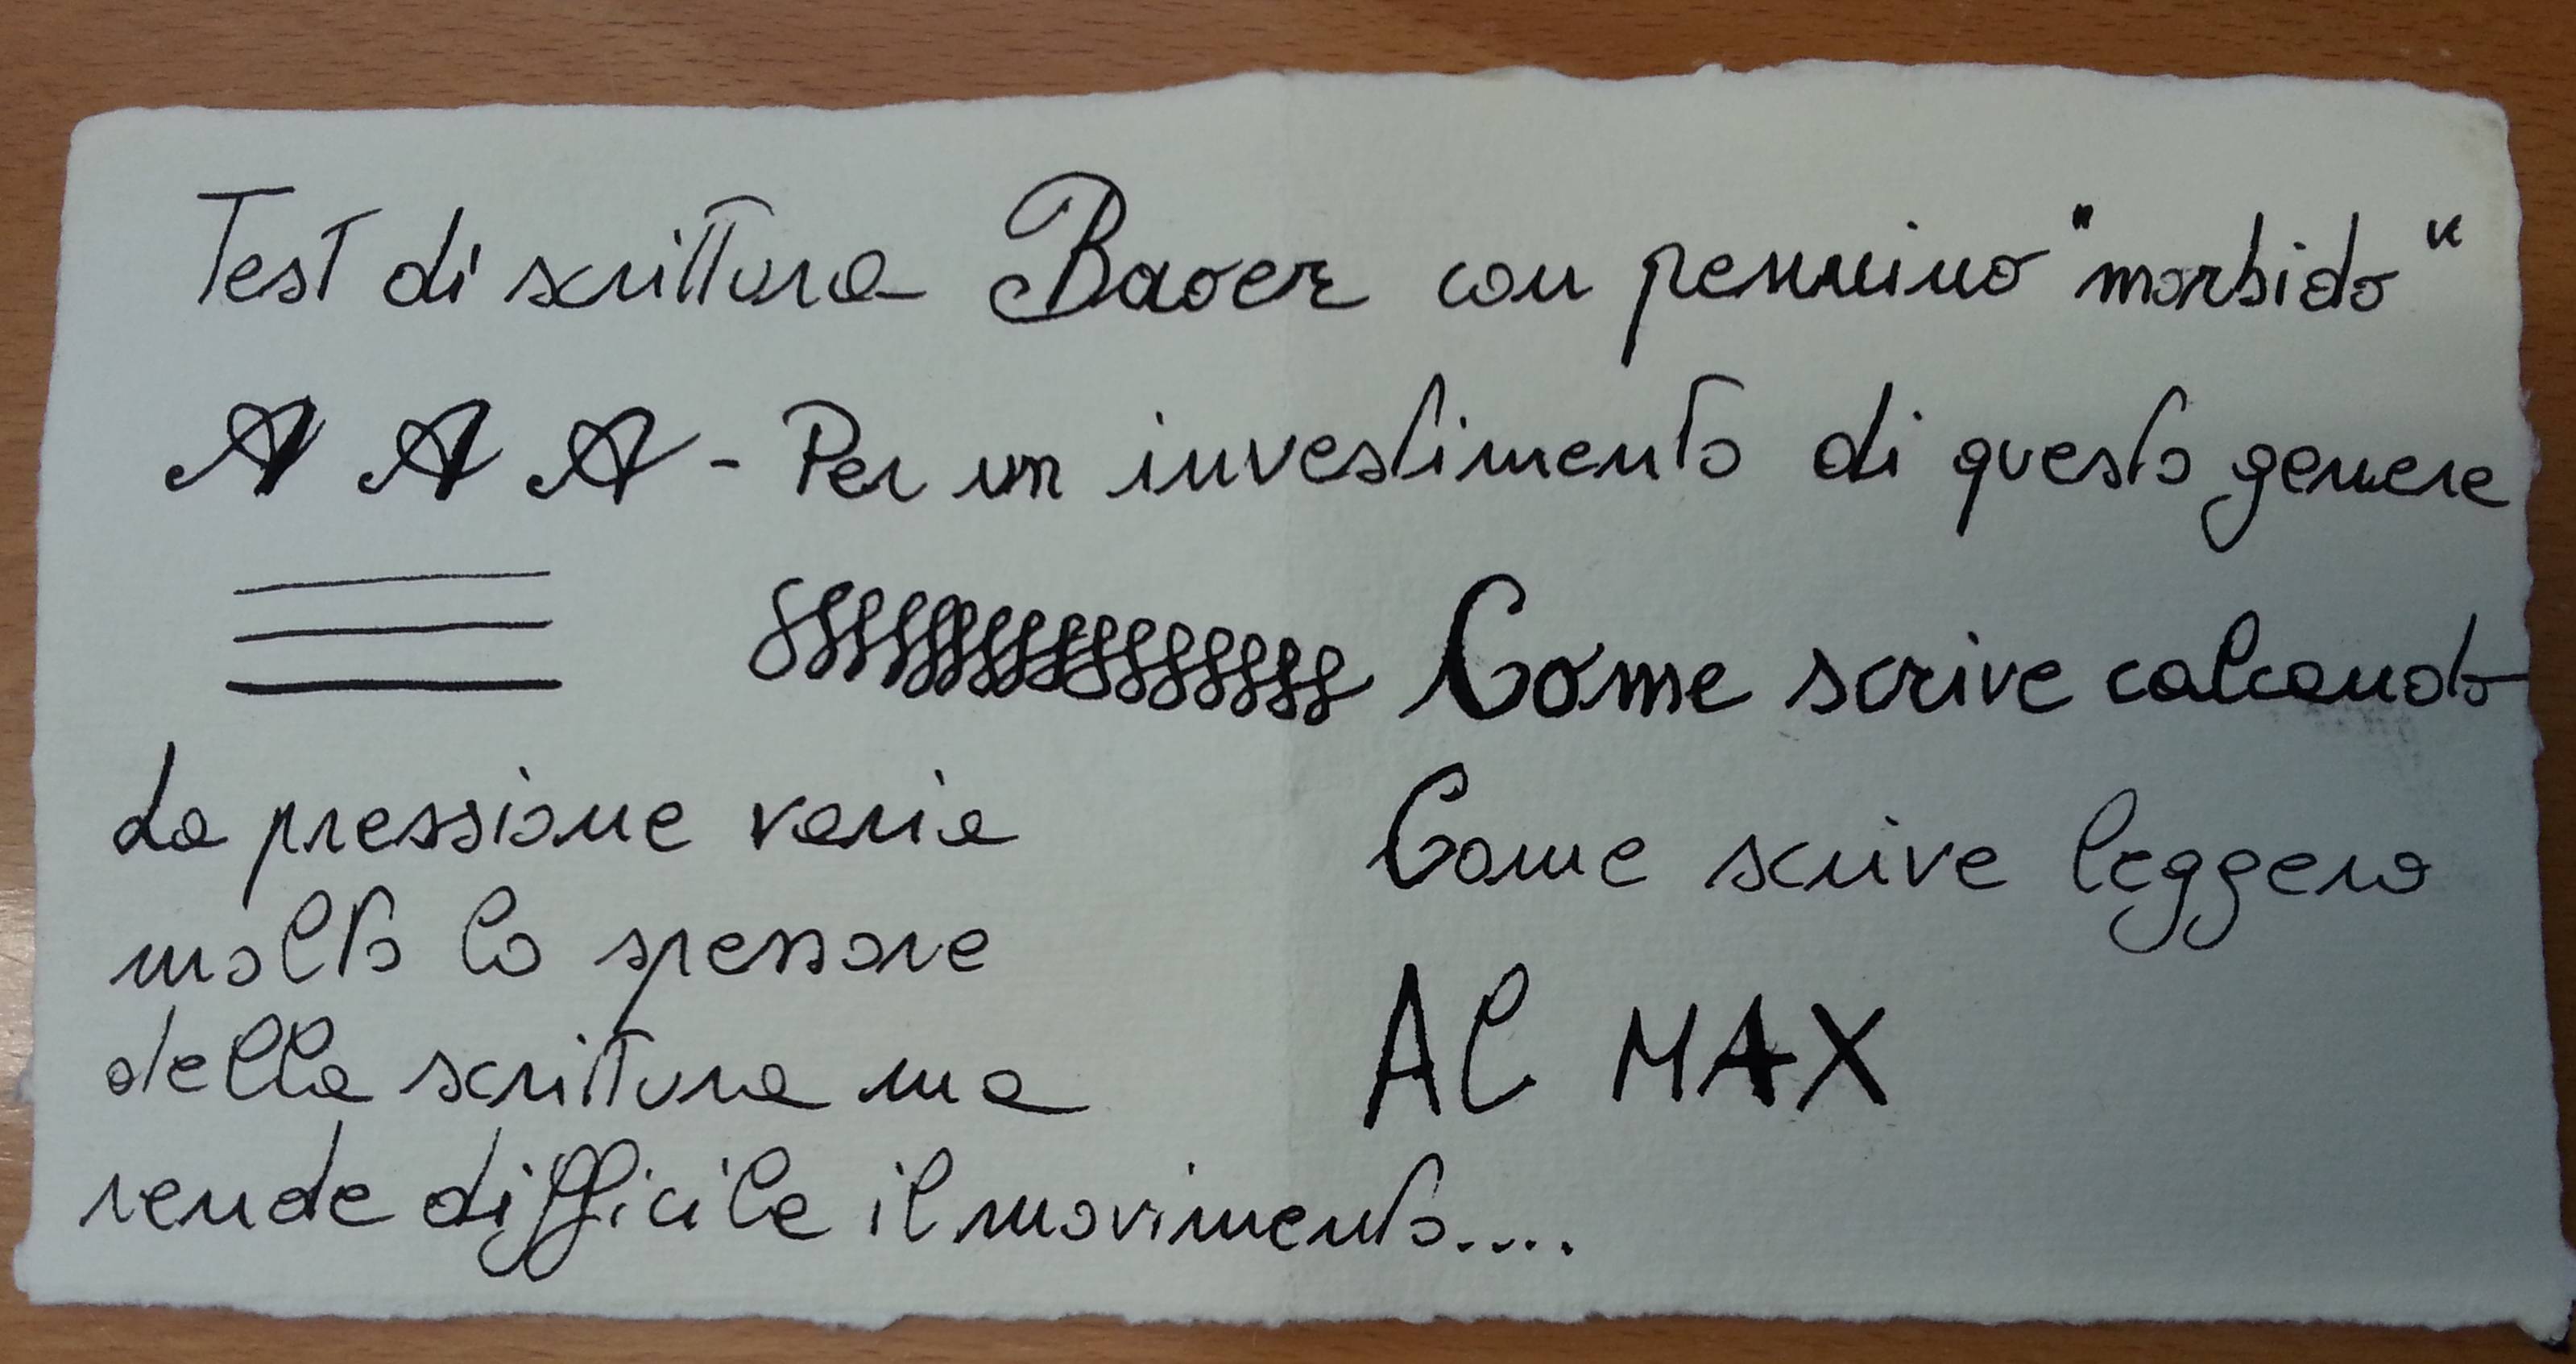 Test di scrittura Baoer con pennino "morbido"
A A A - Per un investimento di questo genere
Come scrive calcando
La pressione varia
molto lo spessore
della scrittura ma
rende difficile il movimento....
Come scrive leggero
Al MAX